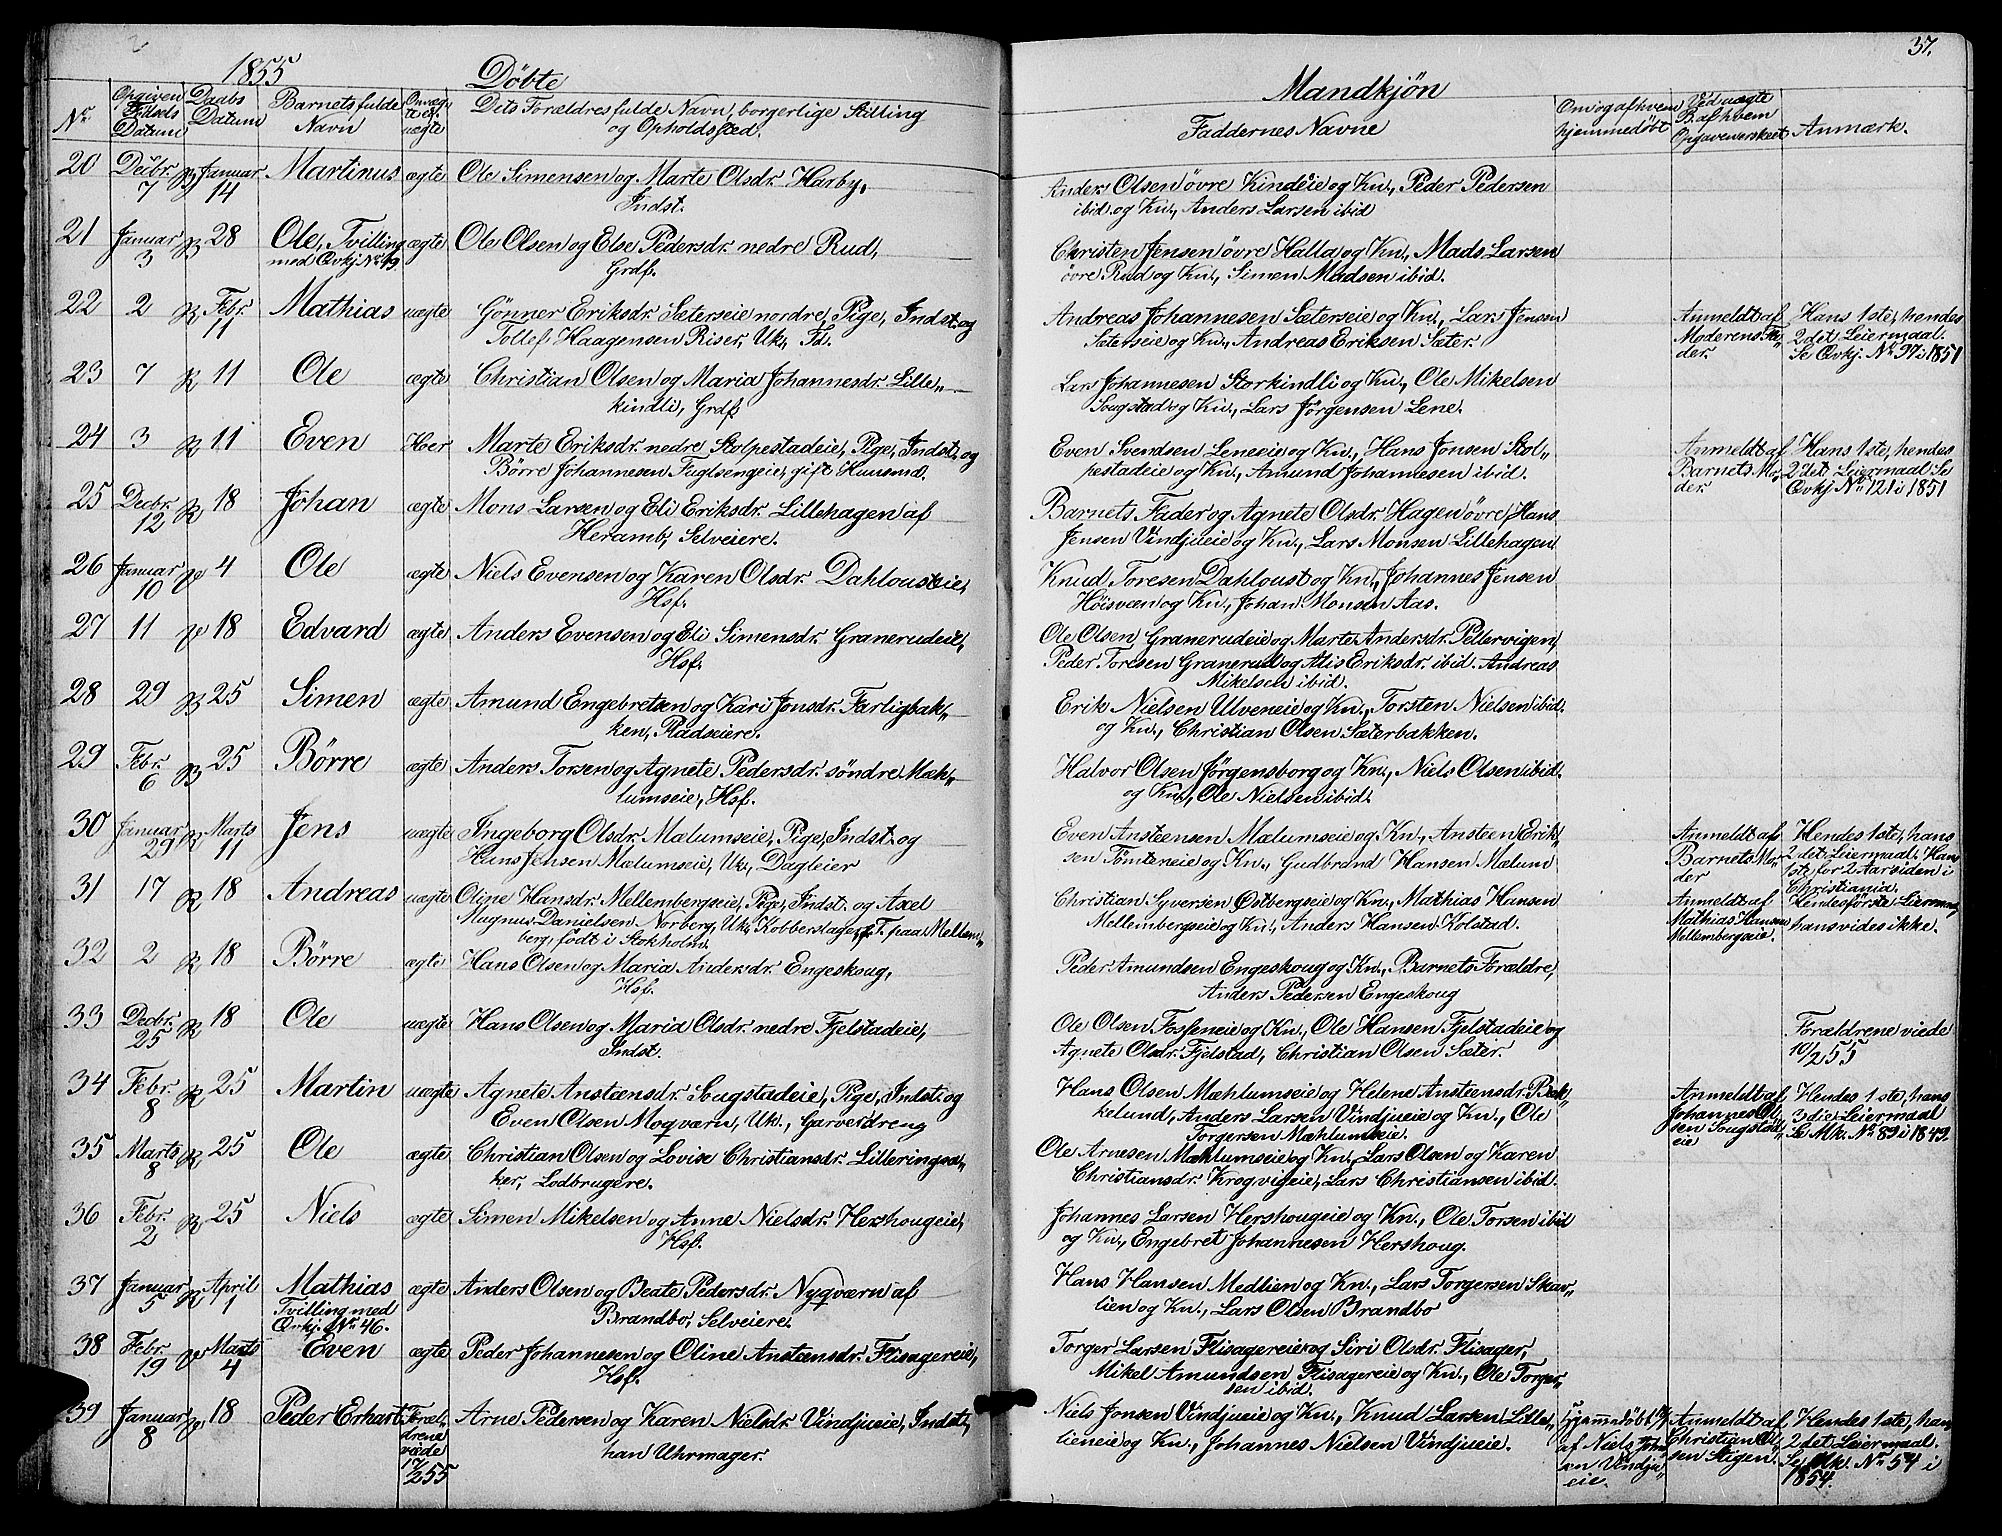 37.
1855 Döbte Mandkjön
Nr. Opgiven Födsels Datum Daabs Datum Barnets fulde Navn Om ægte el. uægte Dets Forældres fulde Navn, borgerlige Stilling og Opholdsted. Faddernes Navne Om og af hvem hjemmedöbt Ved uægte B. af hvem Opgaven er skeet Anmærk.
20 Decbr. 7 Januar 14 Martinus ægte Ole Simensen og Marte Olsdr. Harby,
Indst.
Anders Olsen övre Kindleie og Kn., Peder Pedersen
ibid. og Kn., Anders Larsen ibid
21 Januar 3 28 Ole, Tvilling ægte Ole Olsen og Else Pedersdr. nedre Rud,
med Qvkj. No. 49 Grdf.
Christen Jensen övre Halla og Kn., Mads Larsen
övre Rud og Kn., Simen Madsen ibid.
22 2 Febr. 11 Mathias uægte Gönner Eriksdr. Sæterseie nordre, Pige, Indst. og
Tollef Haagensen Riser, Uk., Fd.
Andreas Johannesen Sæterseie og Kn., Lars Jensen
Sæterseie og Kn., Andreas Eriksen Sæter
Anmeldt af
Moderens Fa„
der.
Hans 1ste, hendes
2det Leiermaal.
Se Qvkj. No. 97 i 1851
23 7 R 11 Ole ægte Christian Olsen og Maria Johannesdr. Lille„
kindli, Grdf.
Lars Johannesen Storkindli og Kn., Ole Mikelsen
Sougstad og Kn., Lars Jörgensen Lene.
24 3 R 11 Even Hoer Marte Eriksdr. nedre Stolpestadeie, Pige, Indst. og
Börre Johannesen Fuglsengeie, gift Huusmd.
Even Svendsen Leneeie og Kn., Hans Jonsen Stol„
pestadeie og Kn., Amund Johannesen ibid.
Anmeldt af
Barnets Mo„
der.
Hans 1ste, hendes
2det Leiermaal Se
Qvkj. No. 121 i 1851
25 Decbr. 12 R 18 Johan ægte Mons Larsen og Eli Eriksdr. Lillehagen af
Heramb, Selveiere.
Barnets Fader og Agnete Olsdr. Hagen övre, Hans
Jensen Vindjueie og Kn., Lars Monsen Lillehagen
26 Januar 10 4 Ole ægte Niels Evensen og Karen Olsdr. Dahlousteie,
Hsf.
Knud Toresen Dahloust og Kn., Johannes Jensen
Höisveen og Kn., Johan Monsen Aas.
27 11 18 Edvard ægte Anders Evensen og Eli Simensdr. Granerudeie,
Hsf.
Ole Olsen Granerudeie og Marte Andersdr. Pellervigen,
Peder Toresen Granerud og Alis Eriksdr. ibid. Andreas
Mikelsen ibid.
28 29 25 Simen ægte Amund Engebretsen og Kari Jonsdr. Farligbak„
ken, Pladseiere.
Erik Nielsen Ulveneie og Kn., Torsten Nielsen ibid.
og Kn., Christian Olsen Sæterbakken.
29 Febr. 6 25 Börre ægte Anders Torsen og Agnete Pedersdr. söndre Mæh„
lumseie, Hsf.
Halvor Olsen Jörgensborg og Kn., Niels Olsen ibid.
og Kn., Ole Nielsen ibid.
30 Januar 29 Marts 11 Jens uægte Ingeborg Olsdr. Mælumseie, Pige, Indst. og
Hans Jensen Mælumseie, Uk., Dagleier
Even Ansteensen Mælumseie og Kn., Ansteen Erik„
sen Tömteneie og Kn., Gudbrand Hansen Mælum
Anmeldt af
Barnets Mo„
der
Hendes 1ste, hans
2det Leiermaal. Hans
1ste for 2 Aar siden i
Christiania.
31 17 R 18 Andreas uægte Oline Hansdr. Mellembergseie, Pige, Indst. og Axel
Magnus Danielsen Norberg, Uk., Kobberslager, p. T. paa Mellem„
berg, födt i Stokholm.
Christian Syversen Ostbergseie og Kn., Mathias Hansen
Mellembergseie og Kn., Anders Hansen Kolstad.
Anmeldt af
Mathias Hansen
Mellembergseie.
Hendes förste Leiermaal
hans vides ikke.
32 2 R 18 Börre ægte Hans Olsen og Maria Andersdr. Engeskoug,
Hsf.
Peder Amundsen Engeskoug og Kn., Barnets Forældre,
Anders Pedersen Engeskoug
33 Decbr. 25 R 18 Ole uægte Hans Olsen og Maria Olsdr. nedre Fjelstadeie,
Indst.
Ole Olsen Fosseneie og Kn., Ole Hansen Fjelstadeie og
Agnete Olsdr. Fjelstad, Christian Olsen Sæter.
Forældrene viede
10/2 55
34 Febr. 8 R 25 Martin uægte Agnete Anstensdr. Sougstadeie, Pige, Indst. og
Even Olsen Moqvarn, Uk., Garverdreng
Hans Olsen Mæhlumseie og Helene Ansteensdr. Bæk„
kelund, Anders Larsen Vindjueie og Kn., Ole
Torgersen Mæhlumseie.
Anmeldt af
Johannes Ol„
sen Sougstad„
eie
Hendes 1ste, hans
3die Leiermaal
Se Mk. No. 89 i 1849.
35 Marts 8 R 25 Ole ægte Christian Olsen og Lovise Christiansdr. Lilleringsa„
ker, Lodbrugere.
Ole Arnesen Mæhlumseie og Kn., Lars Olsen og Karen
Christiansdr. Krogvigeie, Lars Christiansen ibid.
36 Febr. 2 R 25 Niels ægte Simen Mikelsen og Anne Nielsdr. Hershougeie,
Hsf.
Johannes Larsen Hershougeie og Kn., Ole Torsen ibid
og Kn., Engebret Johannesen Hershoug.
37 Januar 5 R April 1 Mathias ægte Anders Olsen og Beate Pedersdr. Nyqværn af
Tvilling med
Qvkj. No. 46. Brandbo, Selveiere.
Hans Hansen Medlien og Kn., Lars Torgersen Skav„
lien og Kn., Lars Olsen Brandbo
38 Febr. 19 Marts 4 Even ægte Peder Johannesen og Oline Anstensdr. Flisagereie,
Hsf.
Torger Larsen Flisagereie og Siri Olsdr. Flisager,
Mikel Amundsen Flisagereie og Kn., Ole Torger„
sen ibid.
39 Januar 8 18 Peder Erhart Foræl„
drene
viede
17/2 55
Arne Pedersen og Karen Nielsdr. Vindjueie, Indst.,
han Uhrmager.
Niels Jonsen Vindjueie og Kn., Knud Larsen Lille„
lieneie og Kn., Johannes Nielsen Vindjueie.
Hjemmedöbt
af Niels Jon„
sen Vindju„
eie.
Anmeldt af
Christian Ol„
sen Stigen.
Hendes 1ste, hans
2det Leiermaal.
Se Mk. No. 54 i
1854.